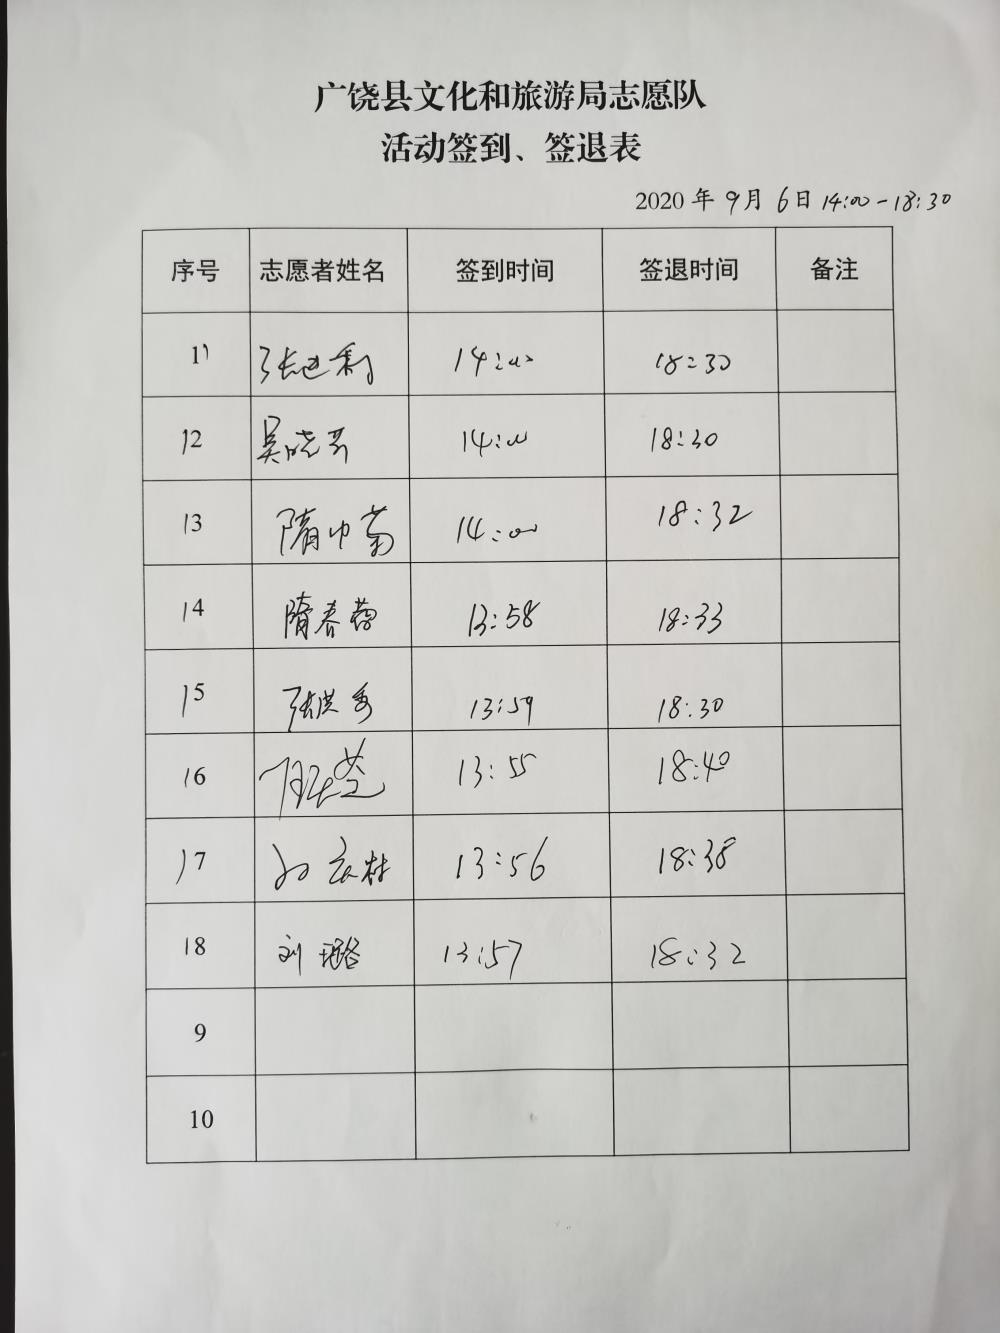 广饶县文化和旅游局志愿队
活动签到、签退表
2020 年 9 月 6 日 14:00-18:30
序号 志愿者姓名 签到时间 签退时间 备注
11 14:00 18:30
12 吴晓芳 14:00 18:30
13 隋巾菊 14:00 18:32
14 隋春蓉 13:58 18:33
15 张洪秀 13:59 18:30
16 13:55 18:40
17 13:56 18:38
18 刘璐 13:57 18:32
9
10